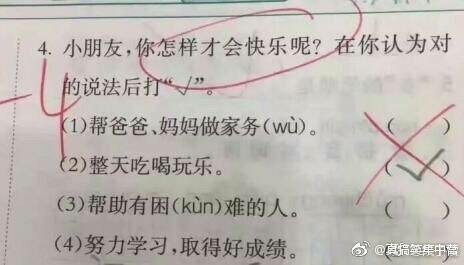 4. 小朋友,你怎样才会快乐呢?在你认为对
的说法后打“√”。
-4
(1)帮爸爸、妈妈做家务(wù)。 ( )
(2)整天吃喝玩乐。 (√)
(3)帮助有困(kùn)难的人。 ( )
(4)努力学习,取得好成绩。